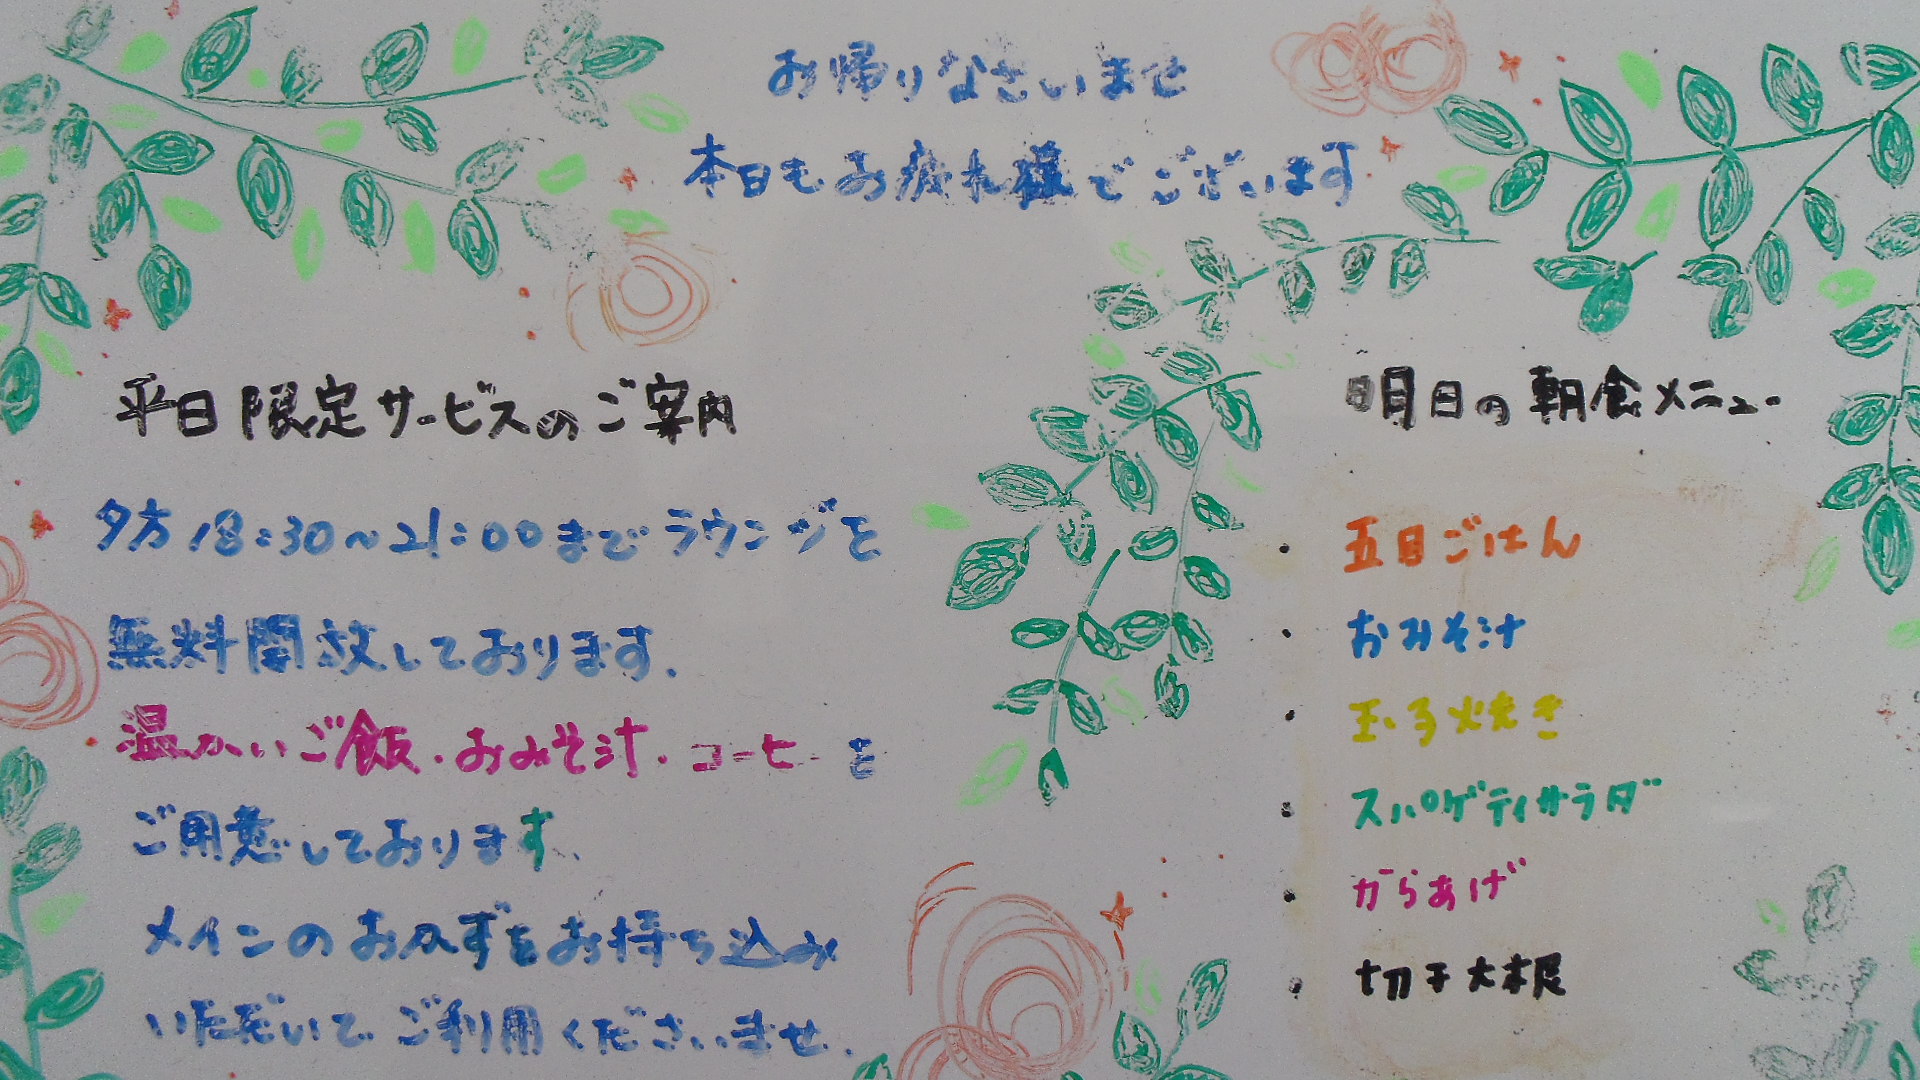 お帰りなさいませ
本日もお疲れ様でございます
平日限定サービスのご案内
夕方18:30~21:00までラウンジを
無料開放しております.
温かいご飯・おみそ汁・コーヒーを
ご用意しております、
メインのおかずをお持ち込み
いただいてご利用くださいませ.
明日の朝食メニュー
・五目ごはん
・おみそ汁
・玉子焼き
・スパゲティサラダ
・からあげ
・切干大根